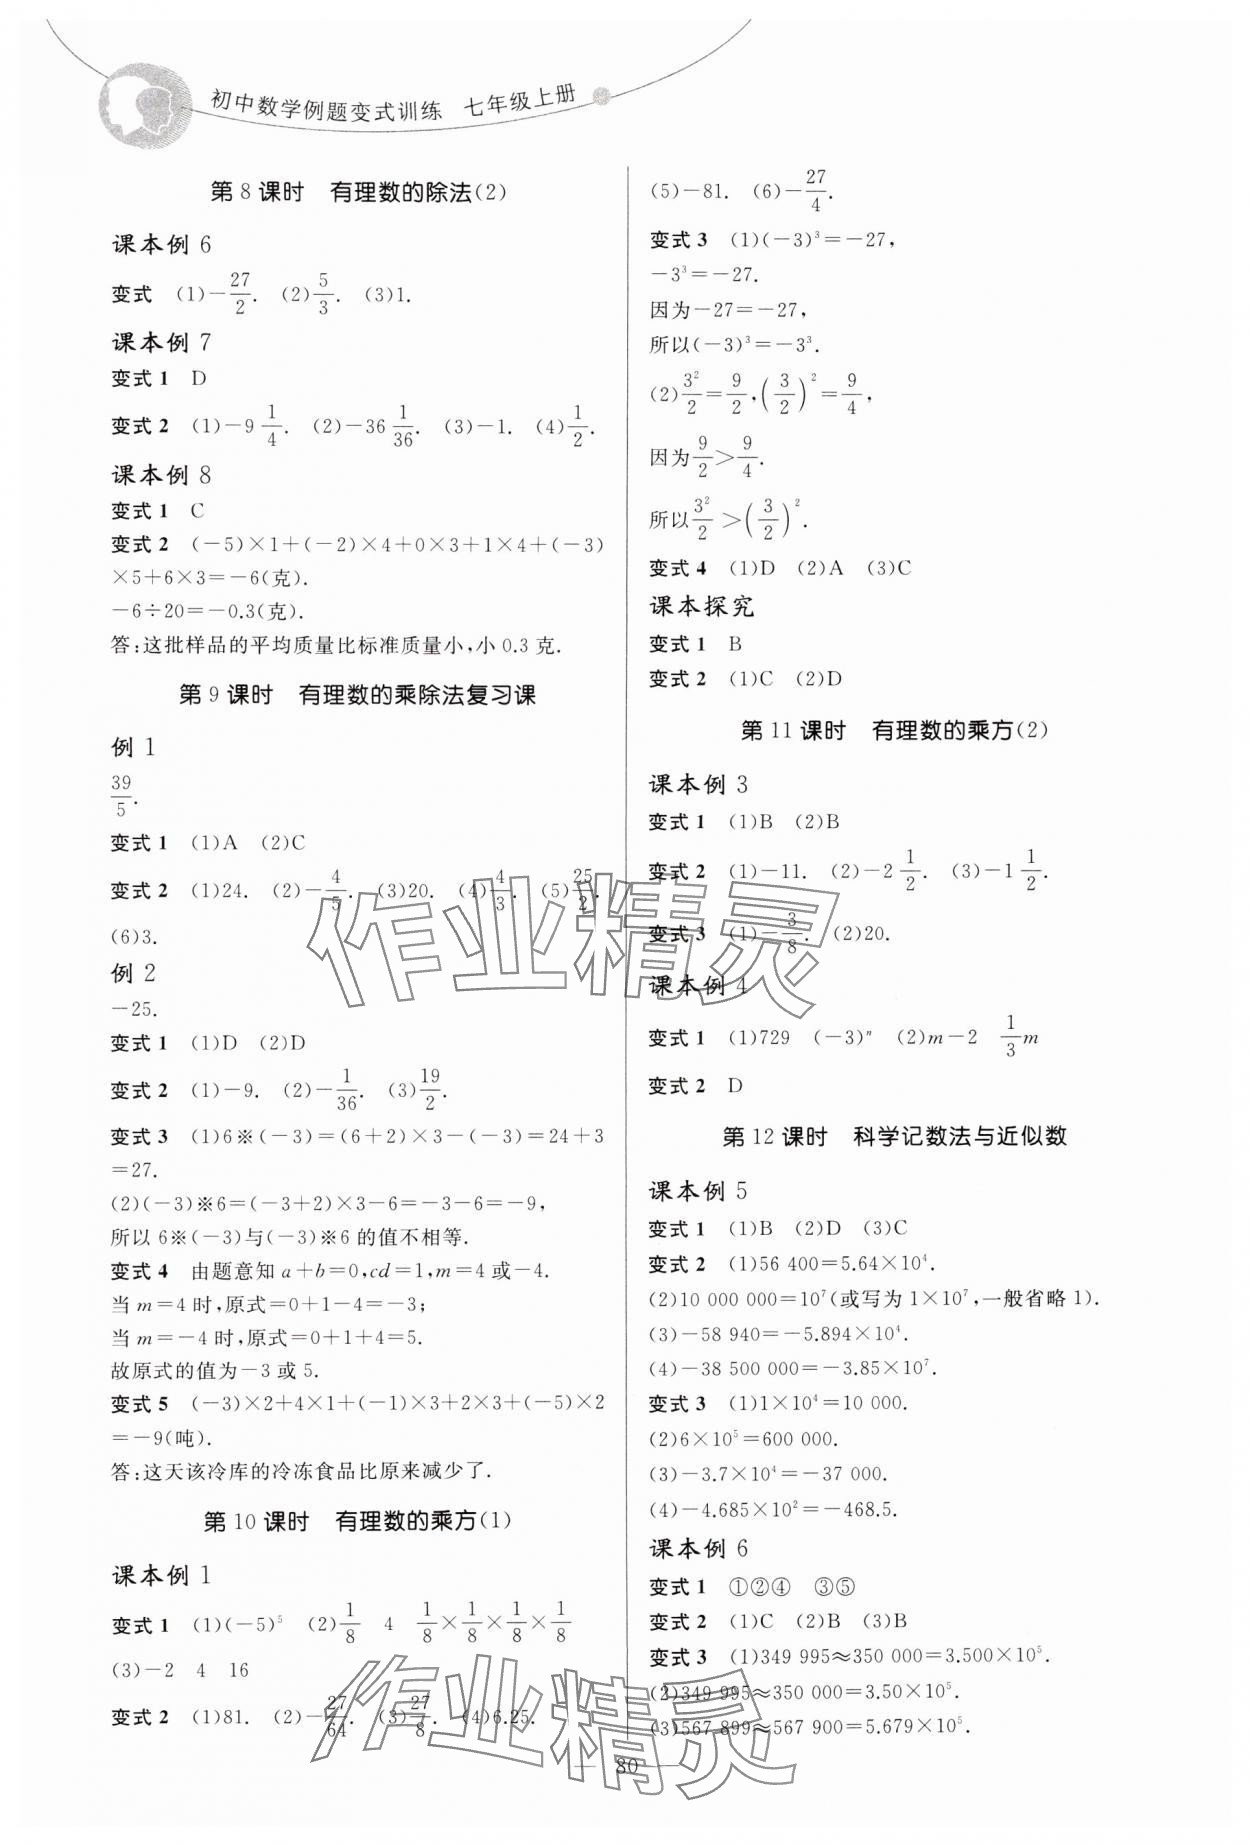 初中数学例题变式训练 七年级上册
第 8 课时 有理数的除法(2)
课本例 6
变式 (1)−27/2. (2)5/3. (3)1.
课本例 7
变式 1 D
变式 2 (1)−9 1/4. (2)−36 1/36. (3)−1. (4)1/2.
课本例 8
变式 1 C
变式 2 (−5)×1+(−2)×4+0×3+1×4+(−3)
×5+6×3=−6(克).
−6÷20=−0.3(克).
答:这批样品的平均质量比标准质量小,小 0.3 克.
第 9 课时 有理数的乘除法复习课
例 1
39/5.
变式 1 (1)A (2)C
变式 2 (1)24. (2)−4/5. (3)20. (4)4/3. (5)25/2.
(6)3.
例 2
−25.
变式 1 (1)D (2)D
变式 2 (1)−9. (2)−1/36. (3)19/2.
变式 3 (1)6※(−3)=(6+2)×3−(−3)=24+3
=27.
(2)(−3)※6=(−3+2)×3−6=−3−6=−9,
所以 6※(−3)与(−3)※6 的值不相等.
变式 4 由题意知 a+b=0,cd=1,m=4 或−4.
当 m=4 时,原式=0+1−4=−3;
当 m=−4 时,原式=0+1+4=5.
故原式的值为−3 或 5.
变式 5 (−3)×2+4×1+(−1)×3+2×3+(−5)×2
=−9(吨).
答:这天该冷库的冷冻食品比原来减少了.
第 10 课时 有理数的乘方(1)
课本例 1
变式 1 (1)(−5)⁵ (2)1/8 4 1/8×1/8×1/8×1/8
(3)−2 4 16
变式 2 (1)81. (2)−27/64. (3)−27/8. (4)6.25.
(5)−81. (6)−27/4.
变式 3 (1)(−3)³=−27,
−3³=−27.
因为−27=−27,
所以(−3)³=−3³.
(2)3²/2=9/2,(3/2)²=9/4,
因为9/2>9/4.
所以3²/2>(3/2)².
变式 4 (1)D (2)A (3)C
课本探究
变式 1 B
变式 2 (1)C (2)D
第 11 课时 有理数的乘方(2)
课本例 3
变式 1 (1)B (2)B
变式 2 (1)−11. (2)−2 1/2. (3)−1 1/2.
变式 3 (1)−3/8. (2)20.
课本例 4
变式 1 (1)729 (−3)ⁿ (2)m−2 1/3 m
变式 2 D
第 12 课时 科学记数法与近似数
课本例 5
变式 1 (1)B (2)D (3)C
变式 2 (1)56 400=5.64×10⁴.
(2)10 000 000=10⁷(或写为 1×10⁷,一般省略 1).
(3)−58 940=−5.894×10⁴.
(4)−38 500 000=−3.85×10⁷.
变式 3 (1)1×10⁴=10 000.
(2)6×10⁵=600 000.
(3)−3.7×10⁴=−37 000.
(4)−4.685×10²=−468.5.
课本例 6
变式 1 ①②④ ③⑤
变式 2 (1)C (2)B (3)B
变式 3 (1)349 995≈350 000=3.500×10⁵.
(2)349 995≈350 000=3.50×10⁵.
(3)567 899≈567 900=5.679×10⁵.
80
作业精灵
作业精灵